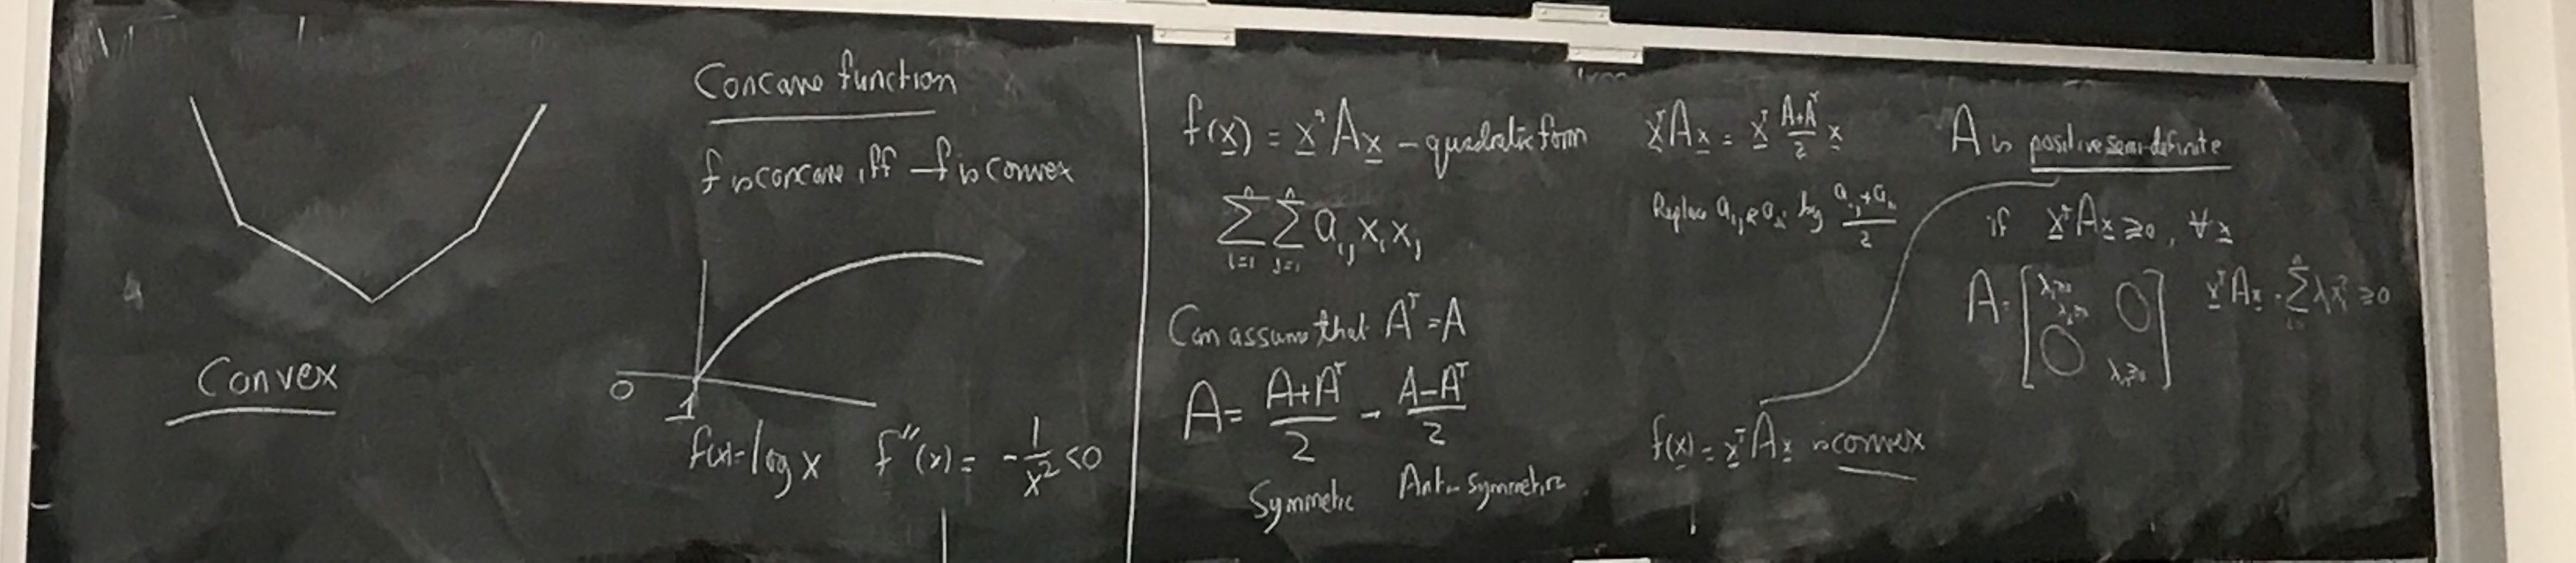 Convex
Concave function
f is concave iff -f is convex
0
1
f(x)=log x f″(x) = -1/x² <0
f(x) = xᵀAx - quadratic form
∑ᵢ₌₁ⁿ ∑ⱼ₌₁ⁿ aᵢⱼ xᵢ xⱼ
Can assume that Aᵀ=A
A = (A+Aᵀ)/2 - (A-Aᵀ)/2
Symmetric Anti-symmetric
xᵀAx = xᵀ (A+Aᵀ)/2 x
Replace aᵢⱼ & aⱼᵢ by (aᵢⱼ+aⱼᵢ)/2
f(x) = xᵀAx is convex
A is positive semi-definite
if xᵀAx ≥0, ∀x
A = [λ₁≥0 λ₂≥0 0 0 λₙ≥0] xᵀAx = ∑ᵢ₌₁ⁿ λᵢxᵢ² ≥0